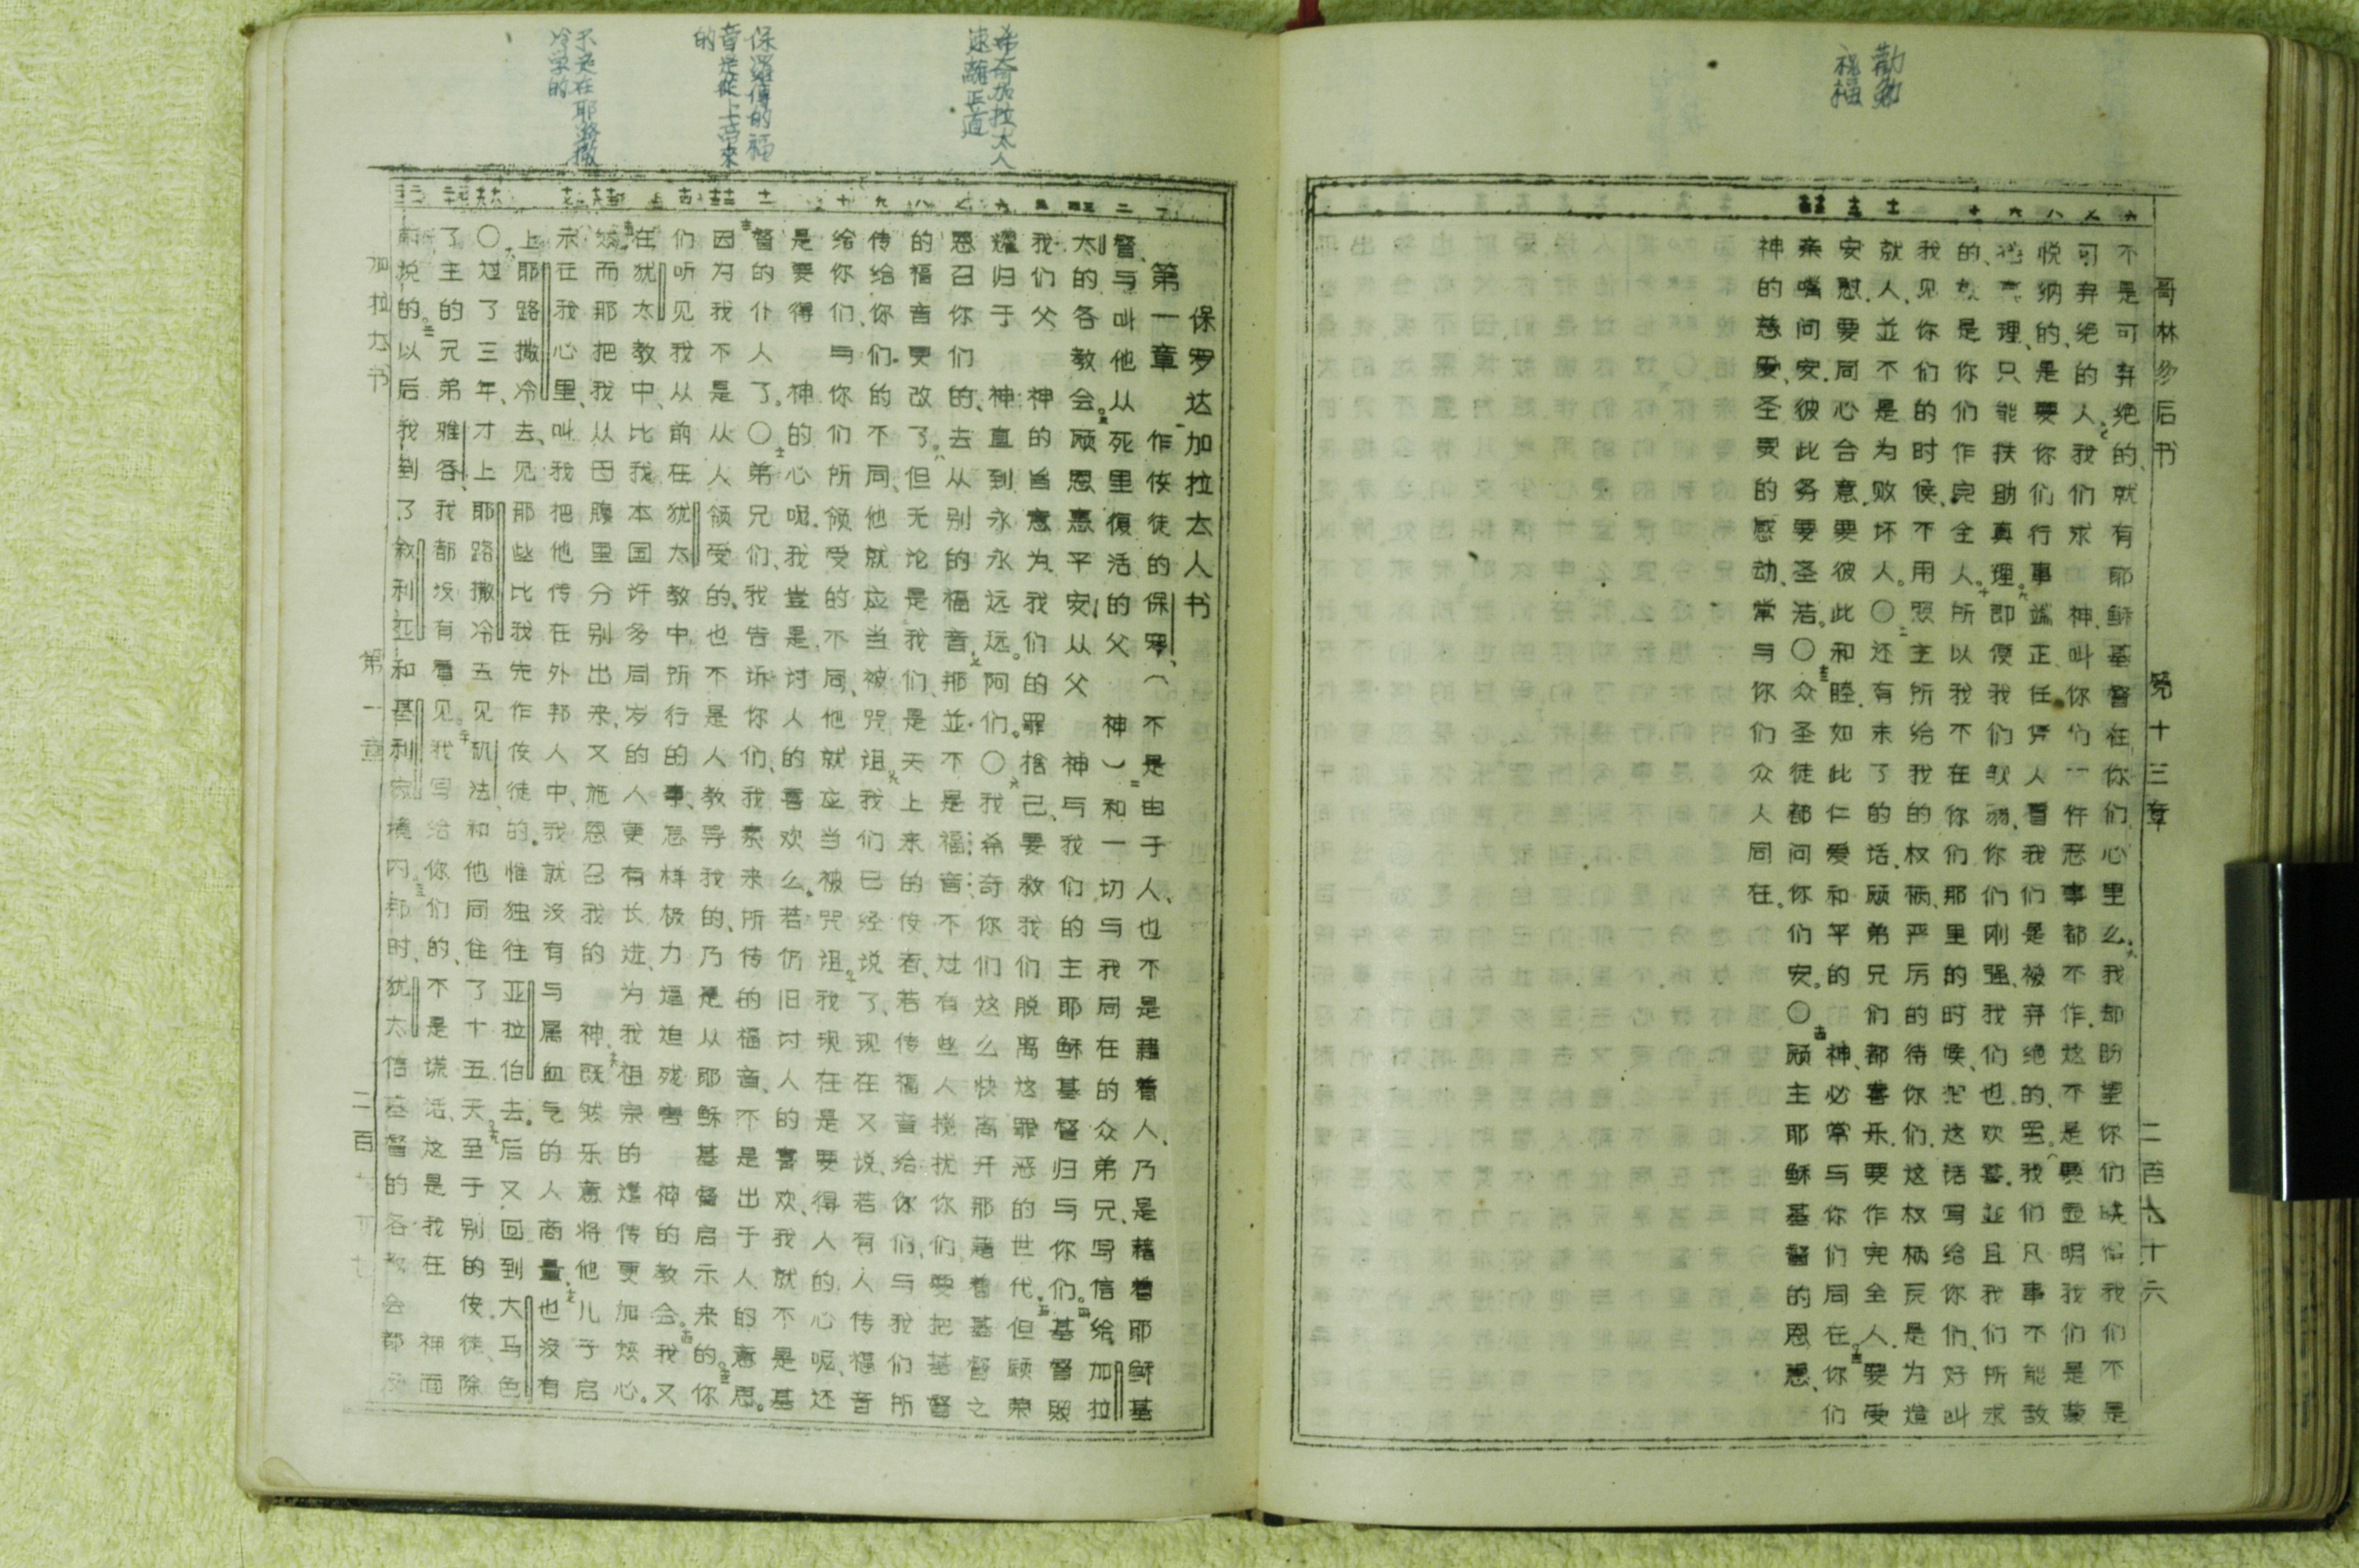 勸勉
祝福
哥林多后书 第十三章 二百七十六
不是可弃绝的、就有耶稣基督在你们心里么。我却盼望你们晓得我们不是
可弃绝的人。我们求神、叫你们一件恶事都不作.这不是要显明我们是蒙
悦纳的、是要你们行事端正、任凭人看我们是被弃绝的、罢。我们凡事不能敌
挡真理、只能扶助真理。即便我们软弱、你们刚强、我们也欢喜.並且我们所求
的、就是你们作完全人。所以我不在你们那里的时候、把这话写给你们、好叫
我见你们的时候、不用照主所给我的权柄、严厉的待你们.这权柄原是为造
就人、並不是为败坏人。〇还有末了的话、愿弟兄们都喜乐.要作完全人.要受
安慰.要同心合意.要彼此和睦.如此仁爱和平的神、必常与你们同在。你们
亲嘴问安.彼此务要圣洁。〇众圣徒都问你们安。〇愿主耶稣基督的恩惠、
神的慈爱、圣灵的感动、常与你们众人同在。
希奇加拉太人
速離正道
保羅傳的福
音是從上帝來
的
不是在耶路撒
冷学的
保罗达加拉太人书
第一章 作使徒的保罗、(不是由于人、也不是藉着人、乃是藉着耶稣基
督、与叫他从死里復活的父神)和一切与我同在的众弟兄、写信给加拉
太的各教会。愿恩惠平安、从父神与我们的主耶稣基督归与你们。基督照
我们父神的旨意为我们的罪捨己、要救我们脱离这罪恶的世代.但愿荣
耀归于神、直到永永远远。阿们。〇我希奇你们这么快离开那藉着基督之
恩召你们的、去从别的福音.那並不是福音.不过有些人搅扰你们、要把基督
的福音更改了。但无论是我们、是天上来的使者、若传福音给你们、与我们所
传给你们的不同、他就应当被咒诅。我们已经说了、现在又说、若有人传福音
给你们、与你们所领受的不同、他就应当被咒诅。我现在是要得人的心呢、还
是要得神的心呢.我岂是讨人的喜欢么。若仍旧讨人的喜欢、我就不是基
督的仆人了。〇弟兄们、我告诉你们、我素来所传的福音、不是出于人的意思。
因为我不是从人领受的、也不是人教导我的、乃是从耶稣基督启示来的。你
们听见我从前在犹太教中所行的事、怎样极力逼迫残害神的教会。我又
在犹太教中、比我本国许多同岁的人更有长进、为我祖宗的遗传更加热心。
然而那把我从母腹里分别出来、又施恩召我的神、既然乐意将他儿子启
示在我心里、叫我把他传在外邦人中、我就没有与属血气的人商量、也没有
上耶路撒冷去、见那些比我先作使徒的.惟独往亚拉伯去。后又回到大马色
〇过了三年、才上耶路撒冷去见矶法、和他同住了十五天。至于别的使徒、除
了主的兄弟雅各、我都没有看见。我写给你们的、不是谎话、这是我在神面
前说的。以后我到了叙利亚和基利家境内.那时、犹太信基督的各教会都没
加拉太书 第一章 二百七十七